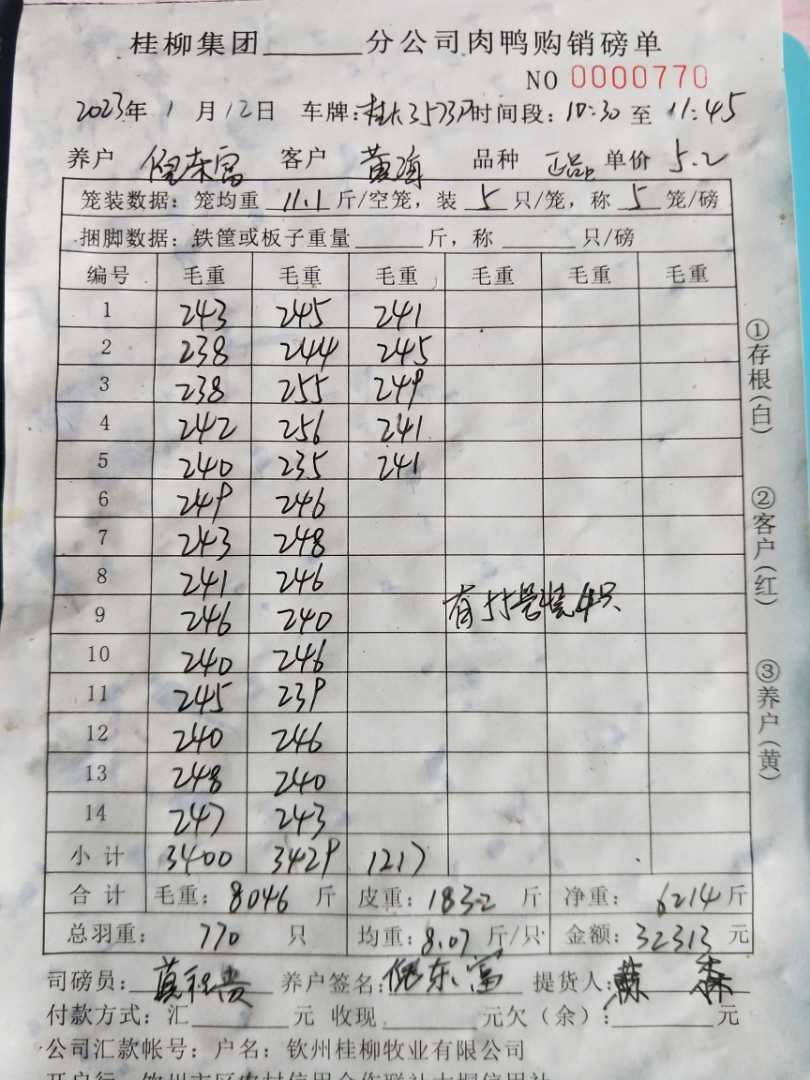 桂柳集团______分公司肉鸭购销磅单
NO 0000770
2023年 1 月 12日 车牌: 时间段: 10:30 至 11:45
养户 倪东富 客户 黄海 品种 正品 单价 5.2
笼装数据: 笼均重 11.1 斤/空笼, 装 5 只/笼, 称 5 笼/磅
捆脚数据: 铁筐或板子重量______斤, 称______只/磅
编号 毛重 毛重 毛重 毛重 毛重 毛重
1 243 245 241
2 238 244 245
3 238 255 249
4 242 256 241
5 240 235 241
6 249 246
7 243 248
8 241 246
9 246 240
10 240 246
11 245 239
12 240 246
13 248 240
14 247 243
小计 3400 3429 1217
合计 毛重: 8046 斤 皮重: 1832 斤 净重: 6214 斤
总羽重: 770 只 均重: 8.07 斤/只 金额: 32313 元
司磅员: 养户签名: 倪东富 提货人:
付款方式: 汇______元 收现______元欠(余):______元
公司汇款帐号: 户名: 钦州桂柳牧业有限公司
①存根(白)
②客户(红)
③养户(黄)